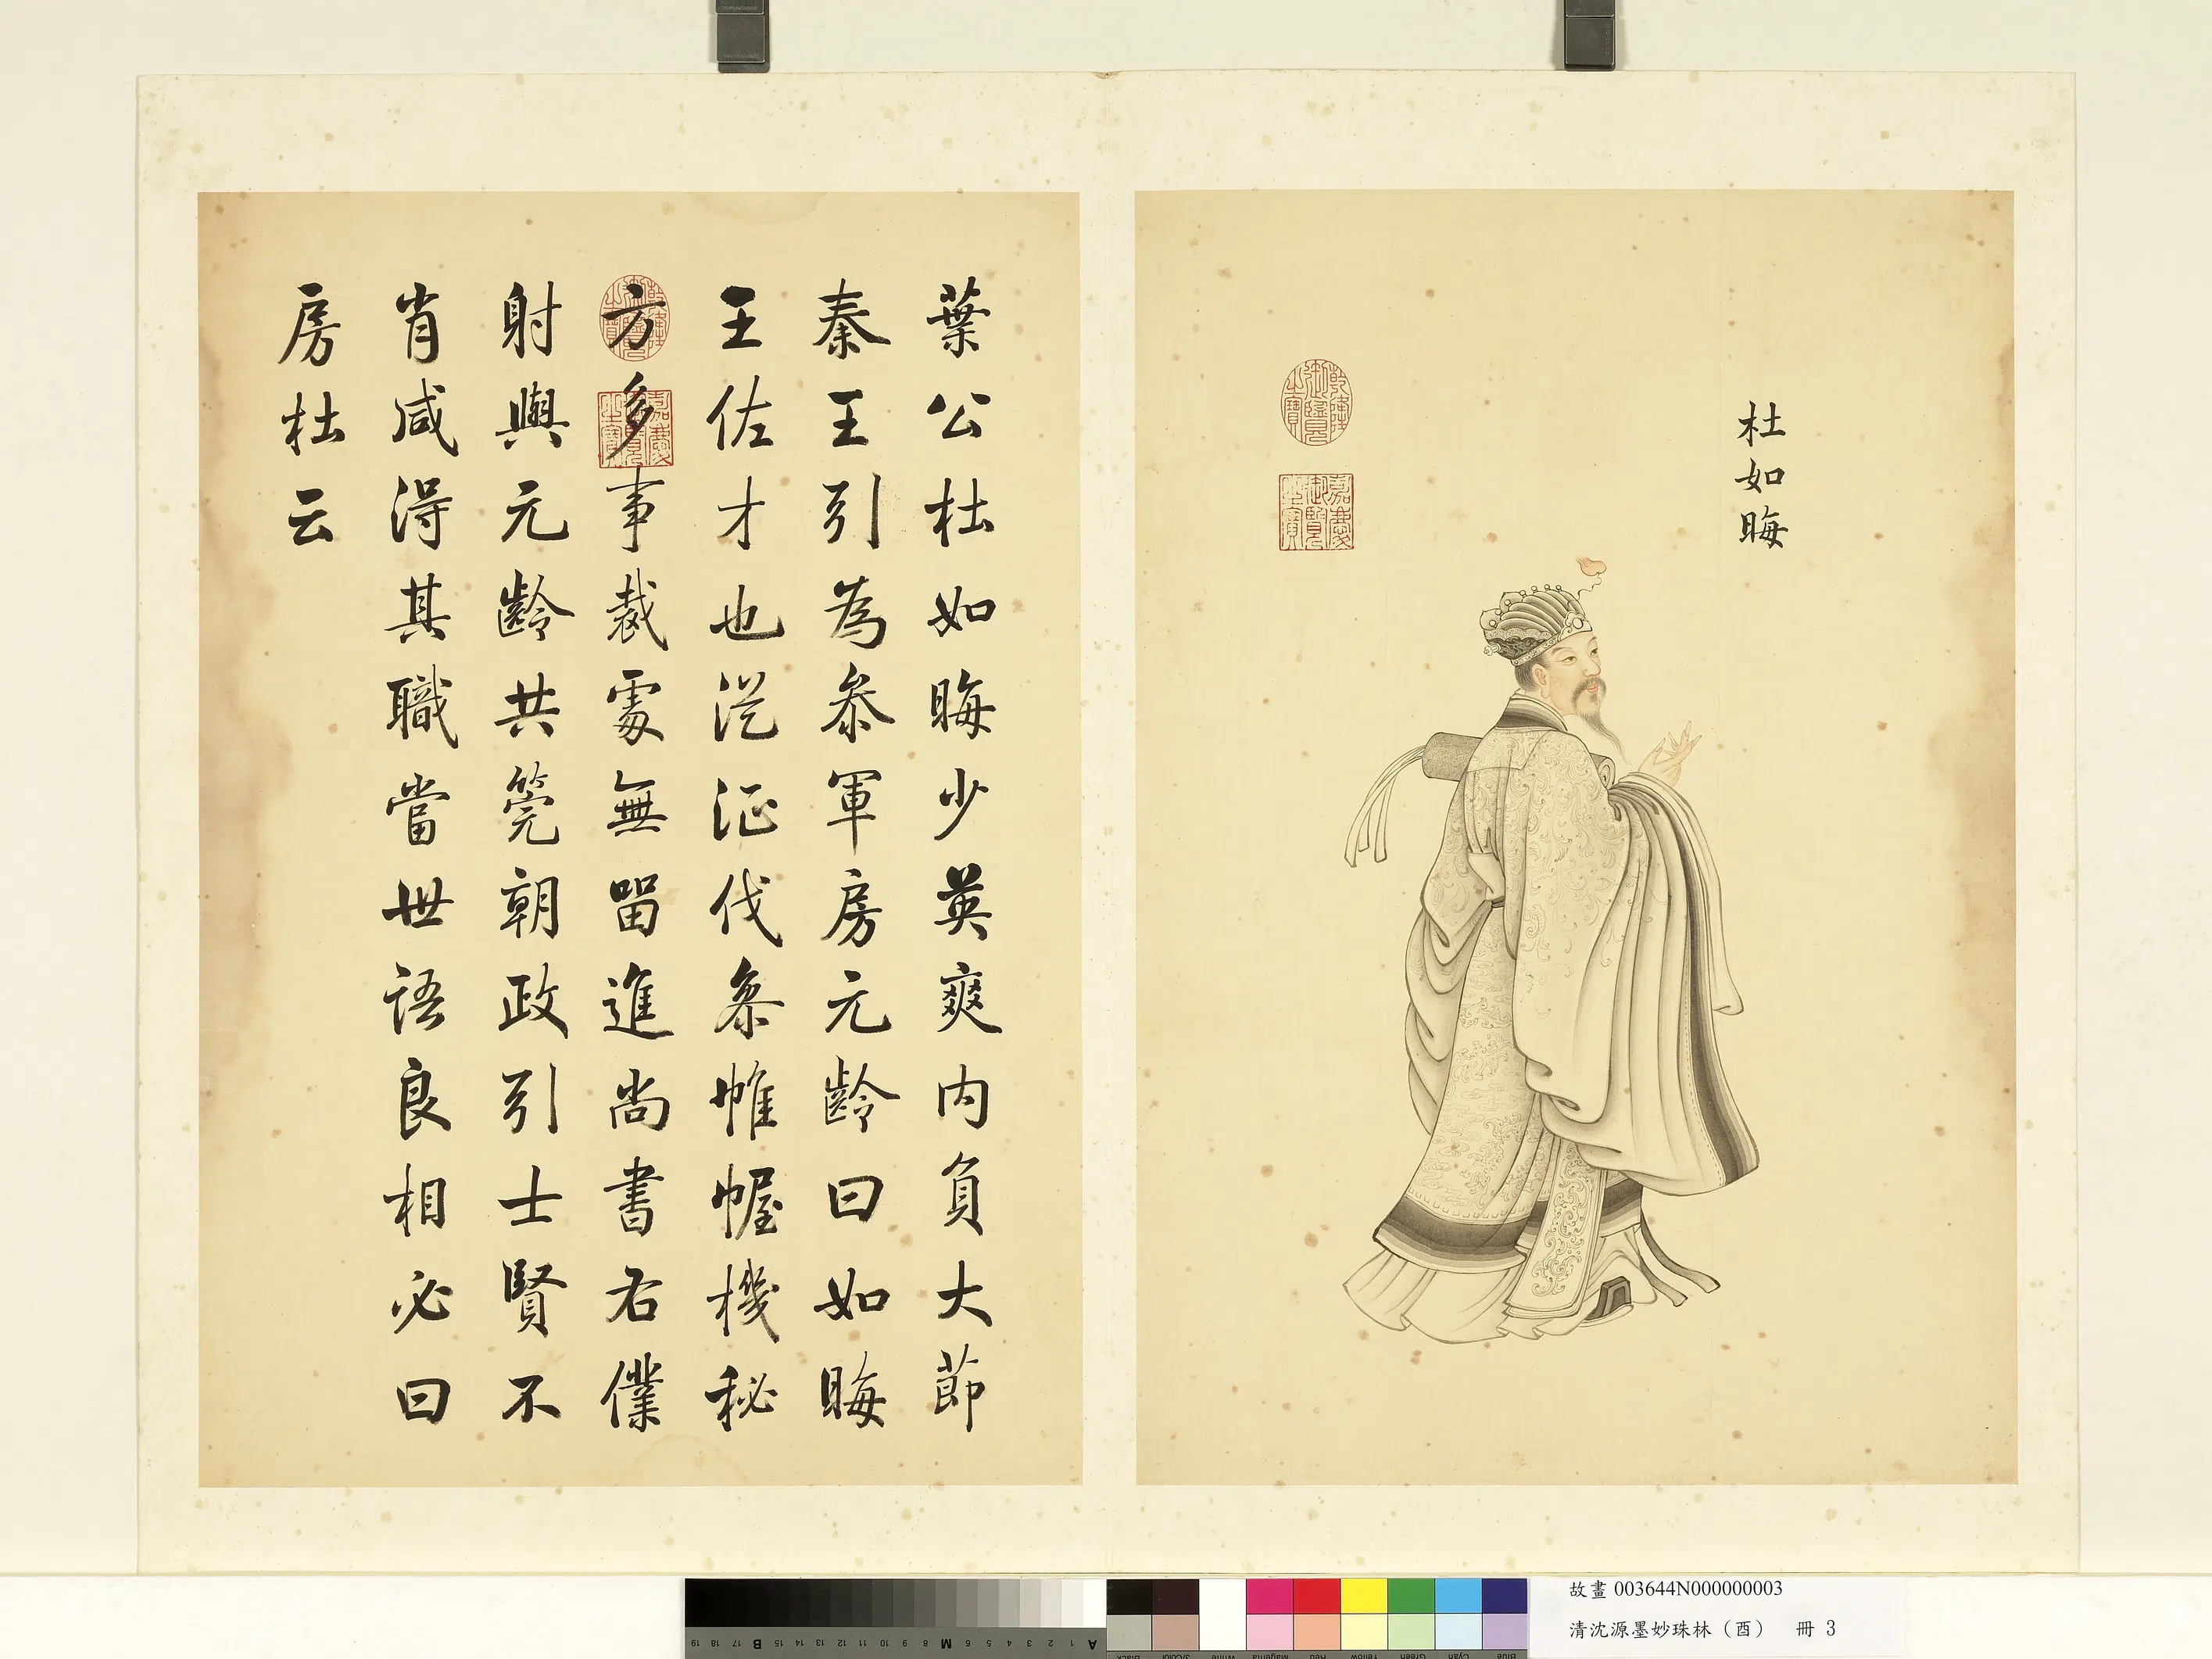 杜如晦
乾隆御覽之寶
嘉慶御覽之寶
葉公杜如晦少英爽内負大節
秦王引為叅軍房元齡曰如晦
王佐才也從征伐叅帷幄機秘
方多事裁處無留進尚書右僕
射與元齡共筦朝政引士賢不
肖咸得其職當世語良相必曰
房杜云
乾隆御覽之寶
嘉慶御覽之寶
故畫 003644N000000003
清沈源墨妙珠林（酉） 冊 3
A 1 2 3 4 5 6 M 8 9 10 11 12 13 14 15 B 17 18 19
Black 3/Color White Magenta Red Yellow Green Cyan Blue